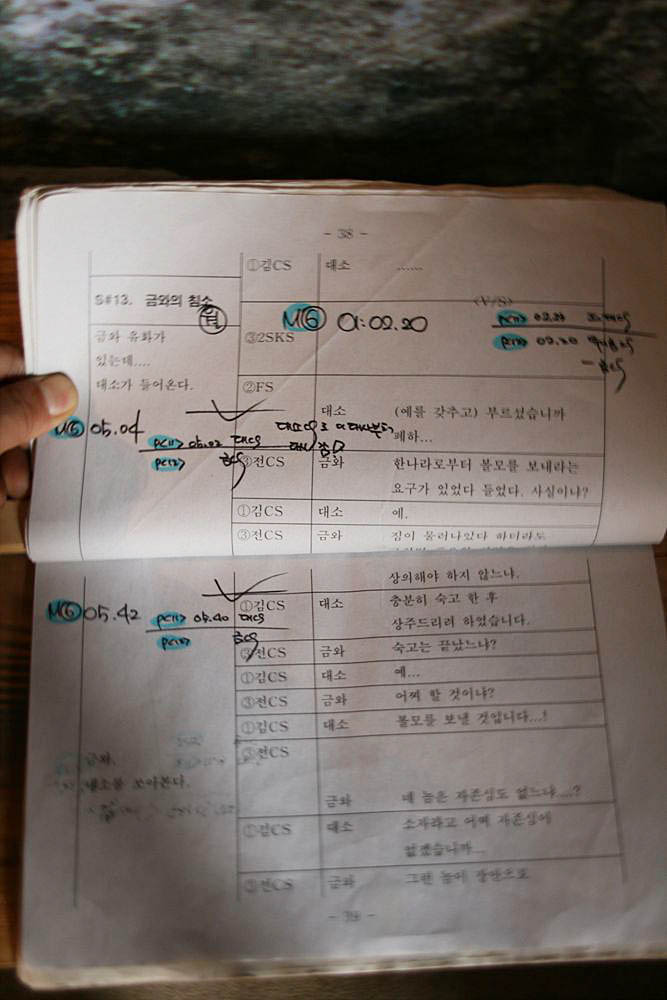 - 38 -
①김CS 대소 ……
S#13. 금와의 침소
월
M⑥ 01:02.20
금와 유화가
③2SKS
있는데....
대소가 들어온다.
②FS
대소 (예를 갖추고) 부르셨습니까
폐하...
M⑤ 05.04
③전CS 금와 한나라로부터 볼모를 보내라는
요구가 있었다 들었다. 사실이냐?
①김CS 대소 예.
③전CS 금와 짐이 물러나있다 하더라도
상의해야 하지 않느냐.
M⑥ 05.42
①김CS 대소 충분히 숙고 한 후
상주드리려 하였습니다.
③전CS 금와 숙고는 끝났느냐?
①김CS 대소 예...
③전CS 금와 어찌 할 것이냐?
①김CS 대소 볼모를 보낼 것입니다...!
③전CS
금와,
대소를 쏘아본다.
금와 네 놈은 자존심도 없느냐....?
①김CS 대소 소자라고 어찌 자존심이
없겠습니까...
③전CS 금와 그런 놈이 장안으로
- 39 -